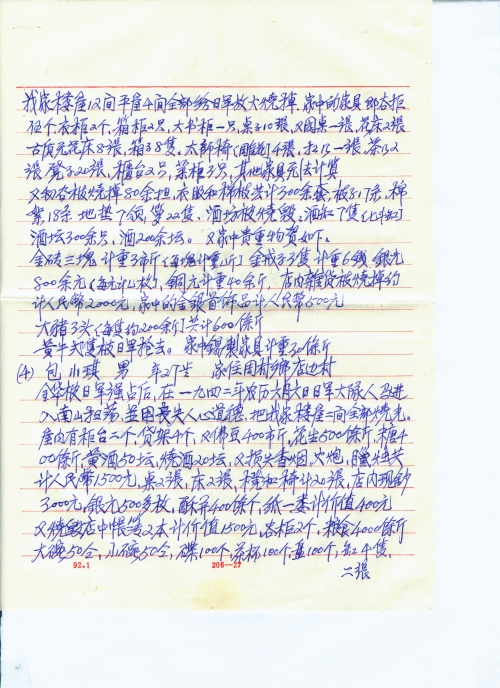 我家楼屋12间平屋4间全部给日军放火烧掉.家中的家具那谷柜
2个衣柜2个,箱柜2只,大书柜一只,桌子10張,又园桌一張,花床2張
古式花床8張,箱38隻,太師椅(雕刻)4張,
張凳子20張,櫃台2只,菜柜3只,其他家具无法计算
又稻谷被烧掉80余担.衣服和棉被共计300余套,被子17条,棉
絮18条 地基7个 22隻.酒坊被烧毁,酒缸7隻
酒坛300余只,酒200余坛。又家中贵重物资如下。
金砖三塊計重3市斤(每塊计重1斤)金戒子3隻计重6錢,銀元
800余元 銅元计重40余斤,店内雜貨被烧掉约
计人民幣2000元,家中的金銀首饰品计人民幣500元
大猪3头(每隻约200余斤)共计600餘斤
黄牛 隻被日軍抢去。家中錫製家具计重30餘斤
(4) 包小琪 男 年27生 家住周村鄉店边村
金华被日軍强占后,在一九四三年农历六月六日日軍大隊人马进
入南山 ,並因丧失人心道德,把我家楼屋二间全部烧光。
屋内有柜台二个,货架4个,又佛豆400市斤,花生500餘斤,糖4
00餘斤,黄酒50坛,烧酒20坛,又损失香烟,火炮,臘烛共
计人民幣1500元,桌2張,床2張,橙和椅计20張,店内现鈔
3000元,銀元500多枚,酥并400餘个,纸一 计价值400元
又烧毁店中帳簿2本计价值1500元,谷柜2个,粮食4000餘斤
大碗50个,小碗50个,碟100个,茶杯100个,盖100个,缸4隻,
92.1 206—27
二張